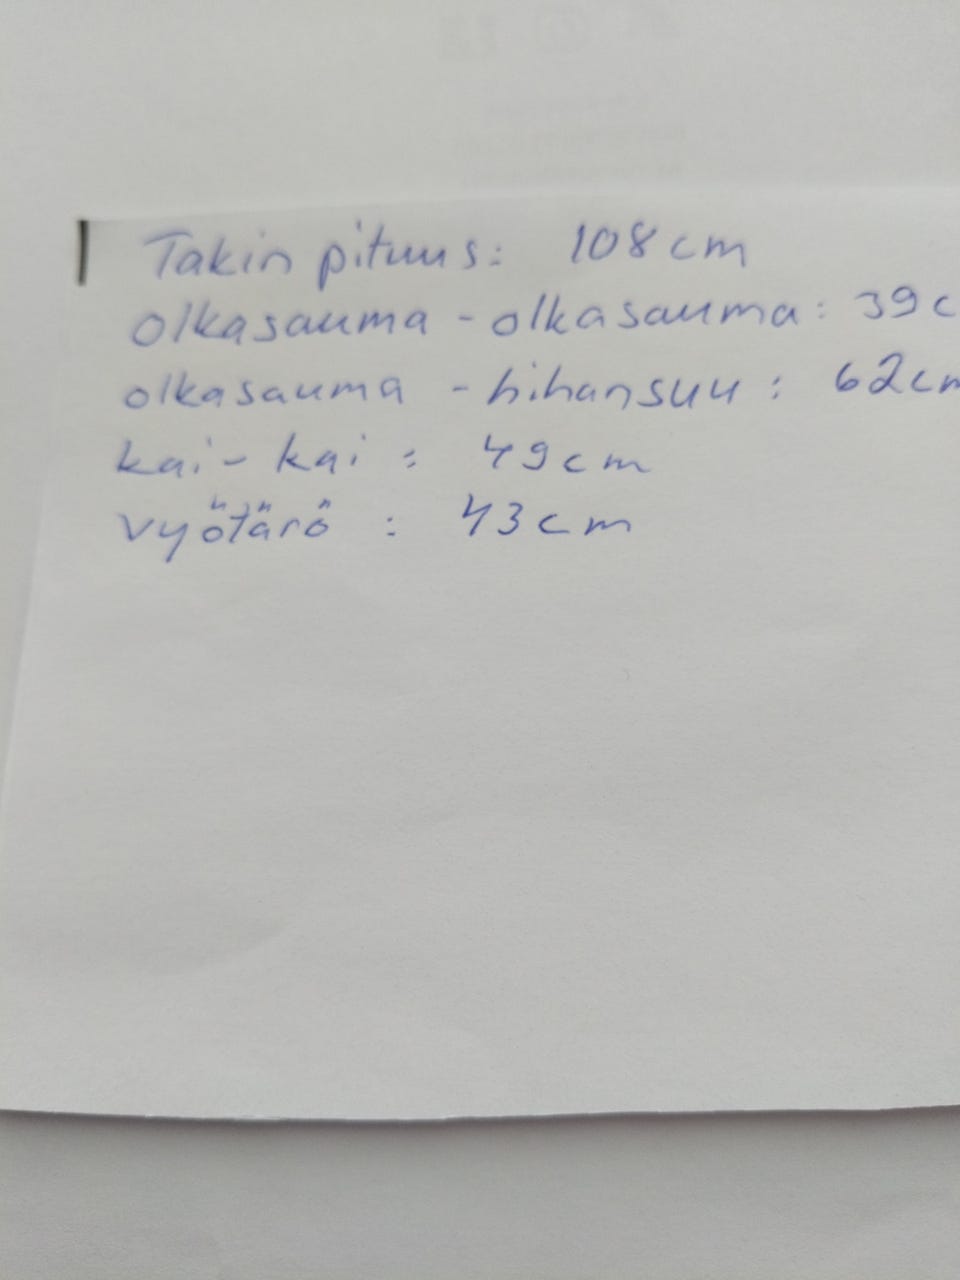 Takin pituus: 108 cm
olkasauma - olkasauma: 39 c
olkasauma - hihansuu: 62 cm
kai - kai: 49 cm
vyötärö: 43 cm